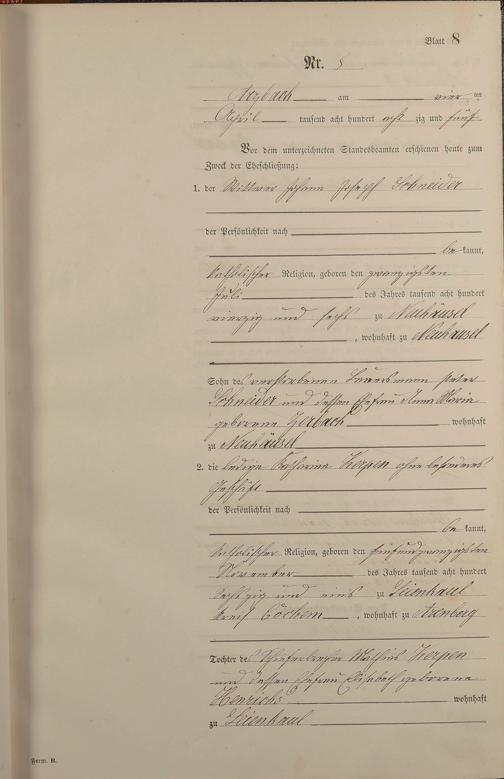 Blatt 8
Nr. 5
Arzbach am vier ten
April tausend acht hundert acht zig und fünf
Vor dem unterzeichneten Standesbeamten erschienen heute zum
Zweck der Eheschließung:
1. der Wittwer Johann Joseph Schneider
der Persönlichkeit nach
be kannt,
katholischer Religion, geboren den zwanzigsten
Juli des Jahres tausend acht hundert
vierzig und sechs zu Neuhäusel
, wohnhaft zu Neuhäusel
Sohn des verstorbenen Bauersmann Peter
Schneider und dessen Ehefrau Anna Maria
geborene Zerbach wohnhaft
zu Neuhäusel
2. die ledige Katharina Kerpen ohne besonderes
Geschäft
der Persönlichkeit nach
be kannt,
katholischer Religion, geboren den fünfundzwanzigsten
November des Jahres tausend acht hundert
sechszig und eins zu Leienkaul
Kreis Cochem , wohnhaft zu Arenberg
Tochter des Mathias Kerpen
und dessen Ehefrau Elisabeth geborene
Henrichs wohnhaft
zu Leienkaul
Form. B.